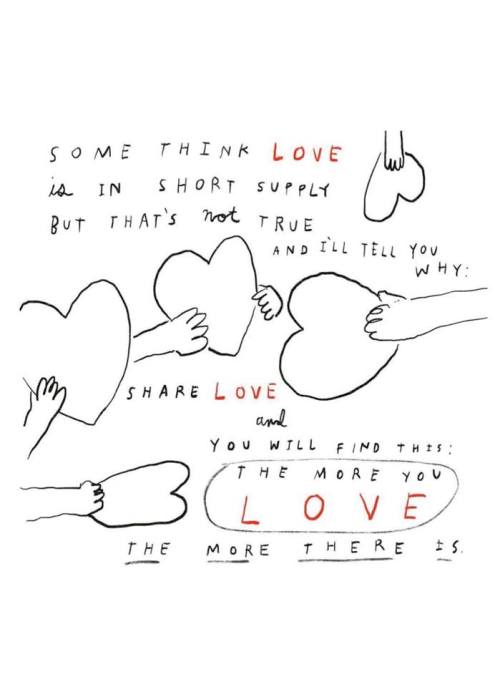 SOME THINK LOVE
is IN SHORT SUPPLY
BUT THAT'S not TRUE
AND I'LL TELL YOU
WHY:
SHARE LOVE
and
YOU WILL FIND THIS:
THE MORE YOU
LOVE
THE MORE THERE IS.